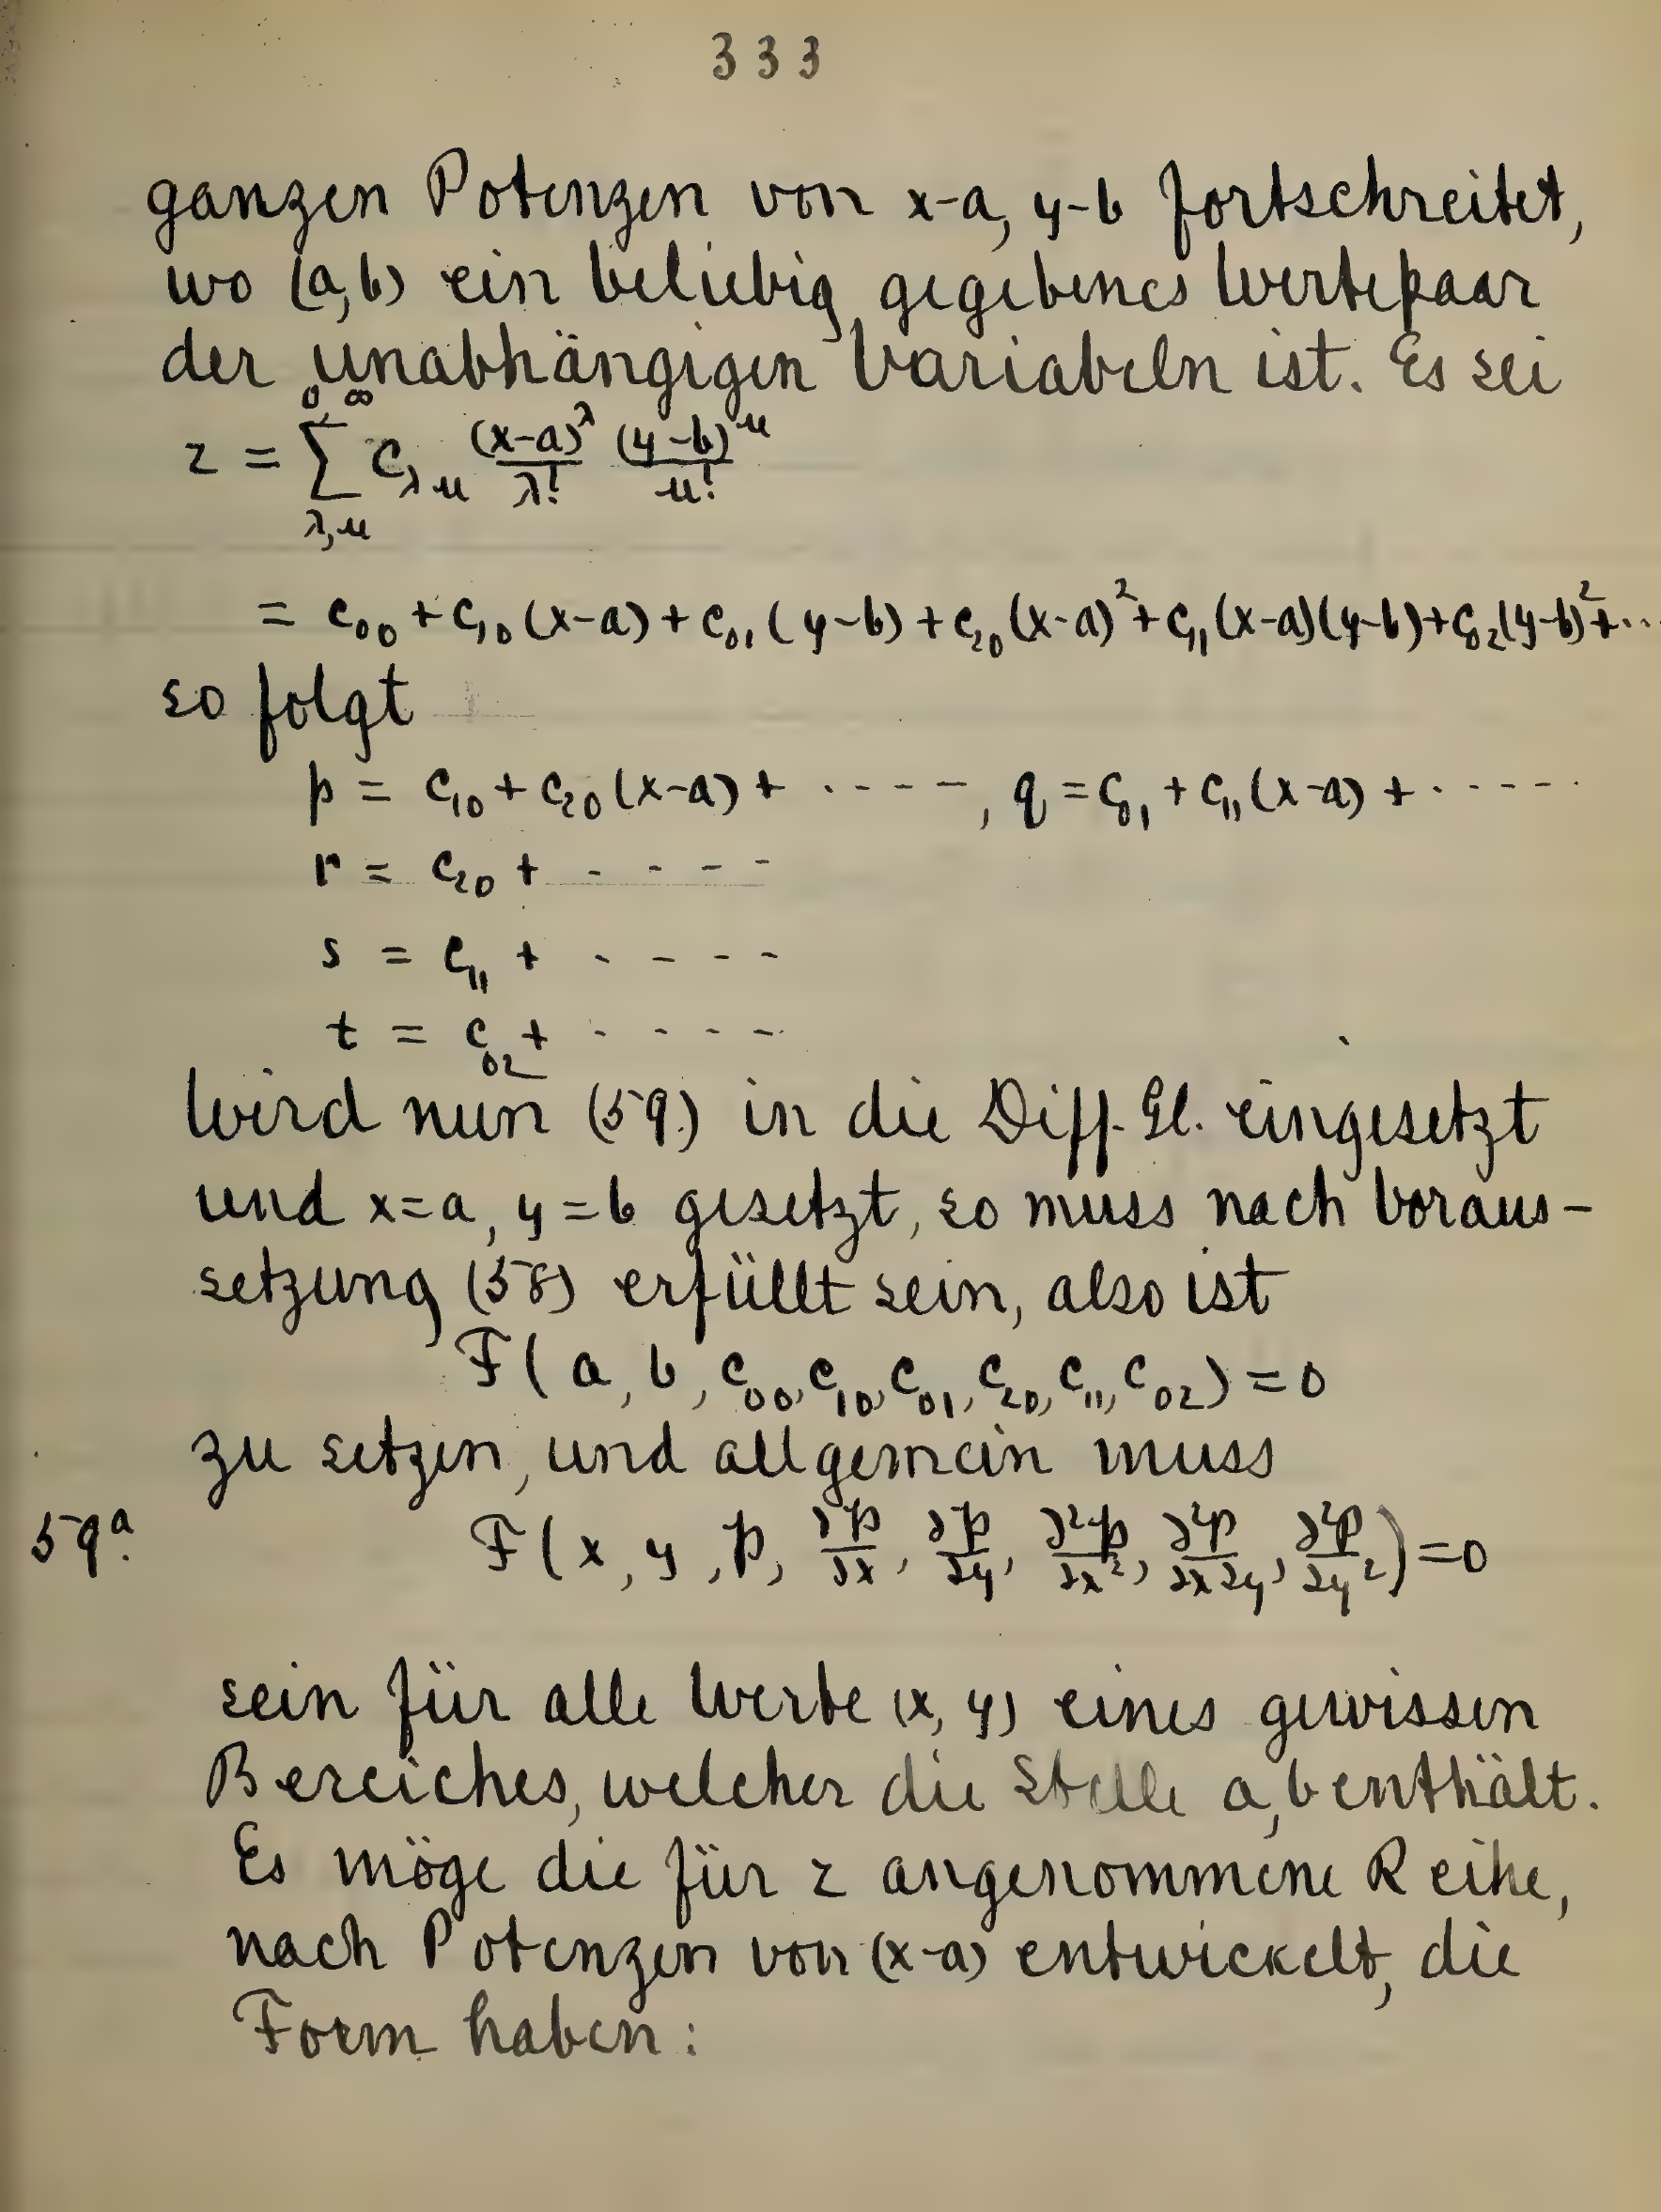 333
ganzen Potenzen von x-a, y-b fortschreitet,
wo (a,b) ein beliebig gegebenes Wertepaar
der unabhängigen Variabeln ist. Es sei
z = \sum_{λ,μ}^{0…∞} c_{λμ} \frac{(x-a)^λ}{λ!} \frac{(y-b)^μ}{μ!}
= c_{00} + c_{10}(x-a) + c_{01}(y-b) + c_{20}(x-a)^2 + c_{11}(x-a)(y-b) + c_{02}(y-b)^2 + ...
so folgt
p = c_{10} + c_{20}(x-a) + ·----, q = c_{01} + c_{11}(x-a) + ·----
r = c_{20} + ----
s = c_{11} + ----
t = c_{02} + ----
Wird nun (59.) in die Diff. Gl. eingesetzt
und x=a, y=b gesetzt, so muss nach Voraus-
setzung (58) erfüllt sein, also ist
F(a, b, c_{00}, c_{10}, c_{01}, c_{20}, c_{11}, c_{02}) = 0
zu setzen, und allgemein muss
59^a. F(x, y, p, \frac{∂p}{∂x}, \frac{∂p}{∂y}, \frac{∂^2p}{∂x^2}, \frac{∂^2p}{∂x∂y}, \frac{∂^2p}{∂y^2}) = 0
sein für alle Werte (x, y) eines gewissen
Bereiches, welcher die Stelle a, b enthält.
Es möge die für z angenommene Reihe,
nach Potenzen von (x-a) entwickelt, die
Form haben: